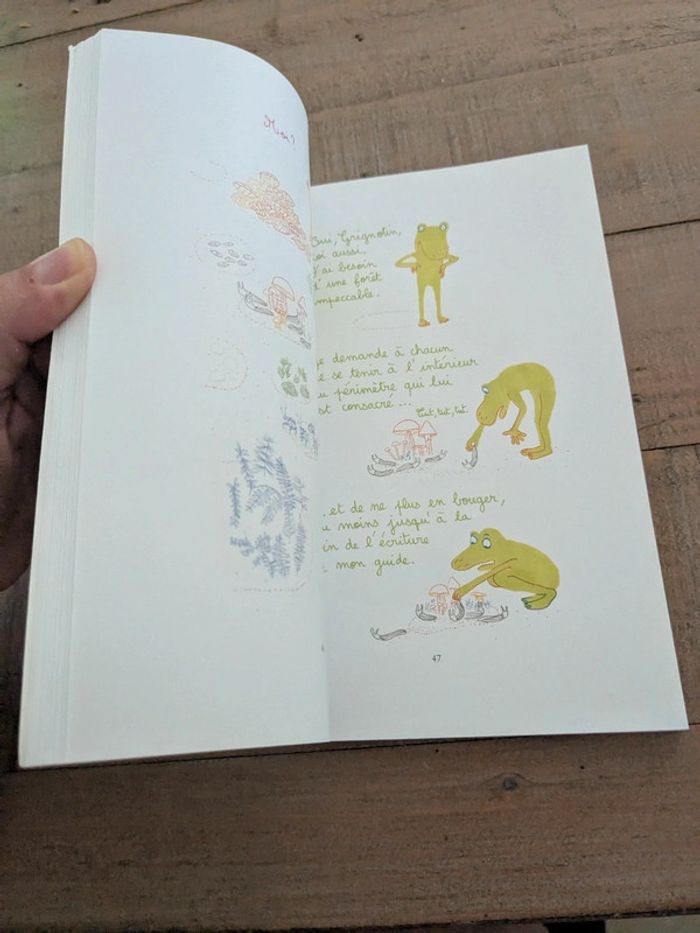 Moi?
Oui, Grignotin,
toi aussi.
J'ai besoin
d'une forêt
impeccable.
je demande à chacun
de se tenir à l'intérieur
du périmètre qui lui
est consacré ...
Tut, tut, tut.
... et de ne plus en bouger,
au moins jusqu'à la
fin de l'écriture
mon guide.
47